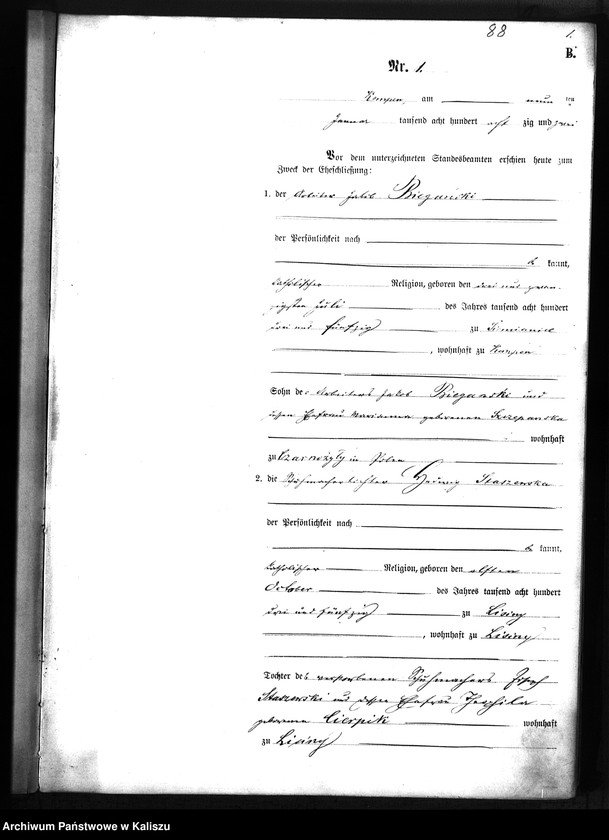 88
1.
B.
Nr. 1.
Kempen, am neun ten
Januar tausend acht hundert acht zig und zwei
Vor dem unterzeichneten Standesbeamten erschien heute zum
Zweck der Eheschließung:
1. der Arbeiter Jakob Biegański
der Persönlichkeit nach
be kannt,
katholischer Religion, geboren den drei und zwan-
zigsten Juli des Jahres tausend acht hundert
drei und fünfzig zu Siemianice
, wohnhaft zu Kempen
Sohn des Arbeiters Jakob Biegański und
Ehefrau Marianna geborenen Szczepanska
wohnhaft
zu Czarnożyły in Polen
2. die Schuhmachertochter Staszewska
der Persönlichkeit nach
be kannt,
katholischer Religion, geboren den elften
October des Jahres tausend acht hundert
drei und fünfzig zu Lisiny
, wohnhaft zu Lisiny
Tochter des verstorbenen Schuhmachers Joseph
Staszewski und dessen Ehefrau Theophila
geborene Cierpik wohnhaft
zu Lisiny
Archiwum Państwowe w Kaliszu